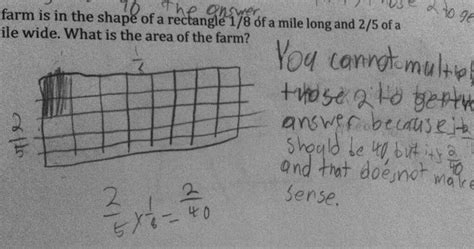 the answer
farm is in the shape of a rectangle 1/8 of a mile long and 2/5 of a
ile wide. What is the area of the farm?
You cannot multip
those 2 to
answer because it
should be 40, but its 2/40
and that does not make
sense.
2/5
2/5 x 1/8 = 2/40